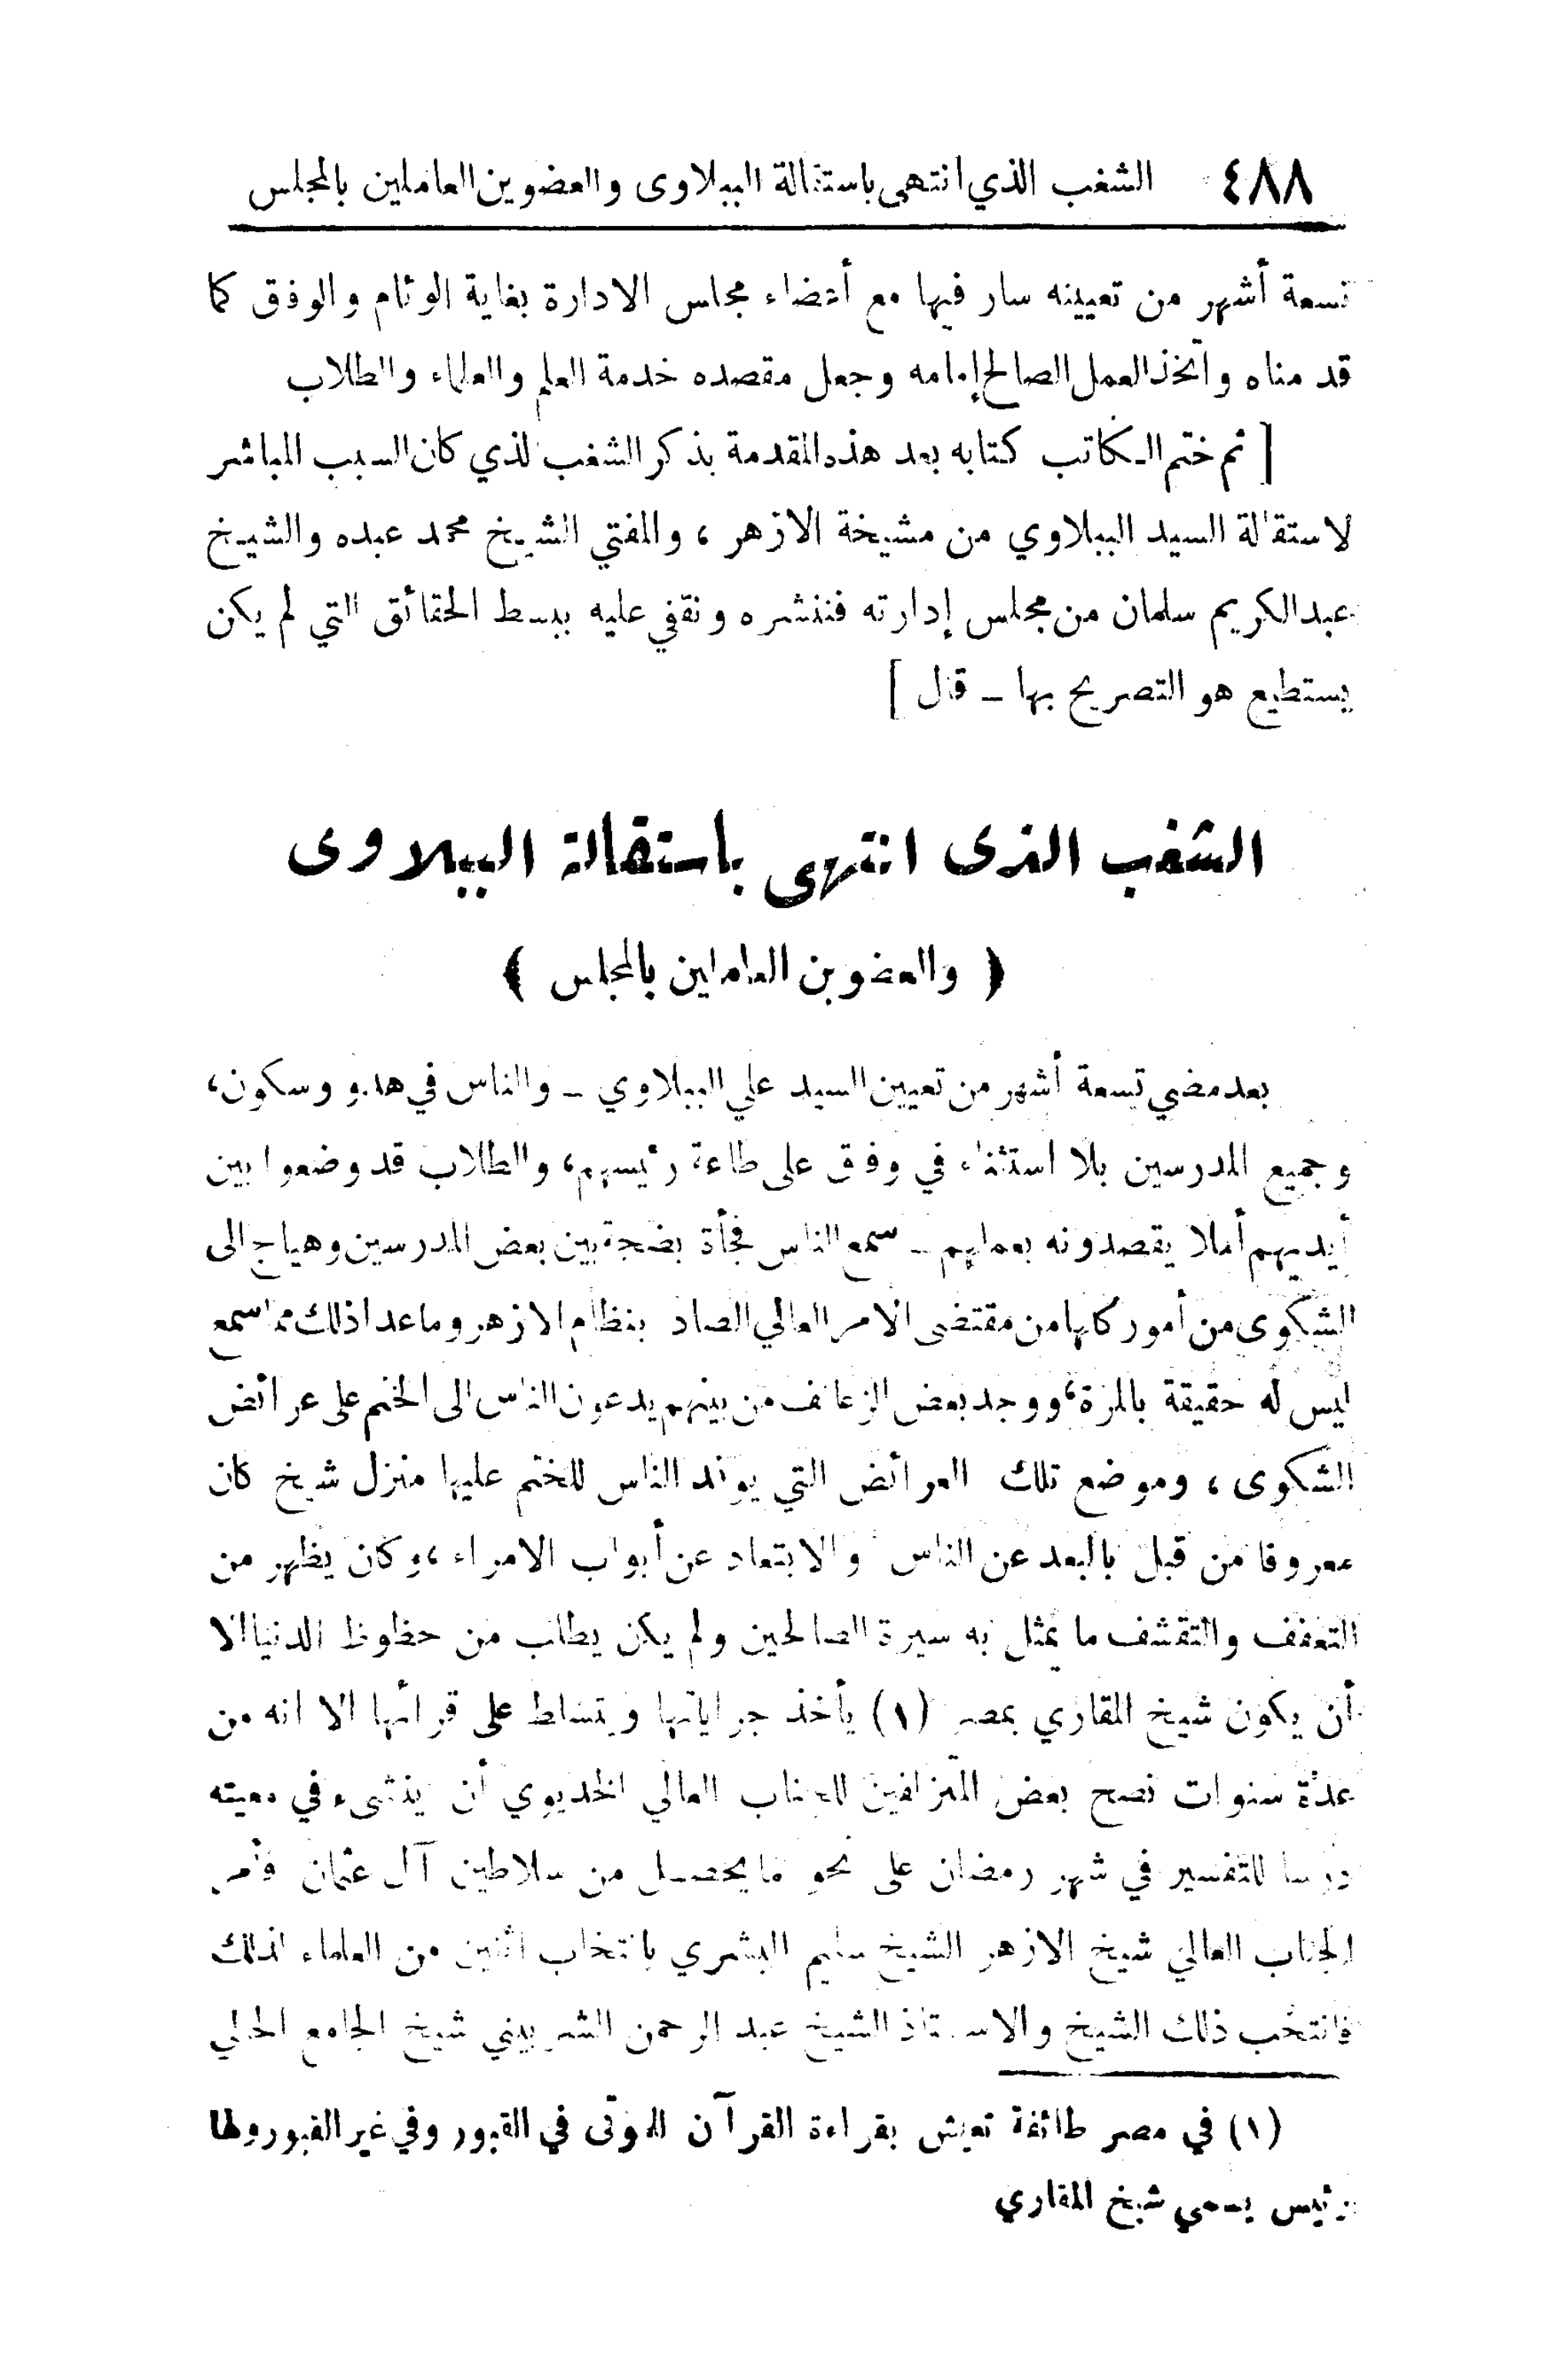 ٤٨٨ الشغب الذي انتهى باستقالة الببلاوى والعضوين العاملين بالمجلس
تسعة أشهر من تعيينه سار فيها مع أعضاء مجلس الادارة بغاية الوئام والوفق كما
قدمناه واتخذ العمل الصالح إمامه وجعل مقصده خدمة العلم والعلماء والطلاب
[ ثم ختم الكاتب كتابه بعد هذه المقدمة بذكر الشغب لذي كان السبب المباشر
لاستقالة السيد الببلاوي من مشيخة الازهر ، والمفتي الشيخ محمد عبده والشيخ
عبدالكريم سلمان من مجلس إدارته فننشره ونقفي عليه ببسط الحقائق التي لم يكن
يستطيع هو التصريح بها ــ قال ]
الشغب الذى انتهى باستقالة الببلاوى
﴿ والعضوين العاملين بالمجلس ﴾
بعد مضي تسعة أشهر من تعيين السيد علي الببلاوي ــ والناس في هدو وسكون،
وجميع المدرسين بلا استثناء في وفق على طاعة رئيسهم، والطلاب قد وضعوا بين
أيديهم أملا يقصدونه بعملهم ــ سمع الناس فجأة بضجة بين بعض المدرسين وهياج الى
الشكوى من أمور كلها من مقتضى الامر العالي الصاد بنظام الازهر وما عدا ذلك مما سمع
ليس له حقيقة بالمرة، ووجد بعض الزعانف من بينهم يدعون الناس الى الختم على عرائض
الشكوى ، وموضع تلك العرائض التي يوفد الناس للختم عليها منزل شيخ كان
معروفا من قبل بالبعد عن الناس والابتعاد عن أبواب الامراء ، وكان يظهر من
التعفف والتقشف ما يمثل به سيرة الصالحين ولم يكن يطلب من حظوظ الدنيا الا
أن يكون شيخ المقاري بمصر (١) يأخذ جراياتها ويتسلط على قرائها الا انه من
عدة سنوات نصح بعض المتزلفين للجناب العالي الخديوي أن ينشىء في معيته
درسا للتفسير في شهر رمضان على نحو ما يحصل من سلاطين آل عثمان فأمر
الجناب العالي شيخ الازهر الشيخ سليم البشري بانتخاب اثنين من العلماء لذلك
فانتخب ذلك الشيخ والاستاذ الشيخ عبد الرحمن الشربيني شيخ الجامع الحالي
(١) في مصر طائفة تعيش بقراءة القرآن للموتى في القبور وفي غير القبور ولها
رئيس يسمى شيخ المقاري